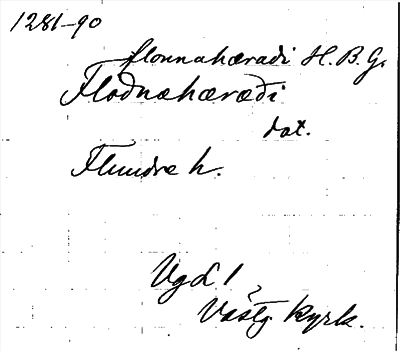 1281-90
flonnahæradi H. B. G.
Floðnæhæræði
dat.
Flundre h.
Vg L 1
?
Västg kyrk.